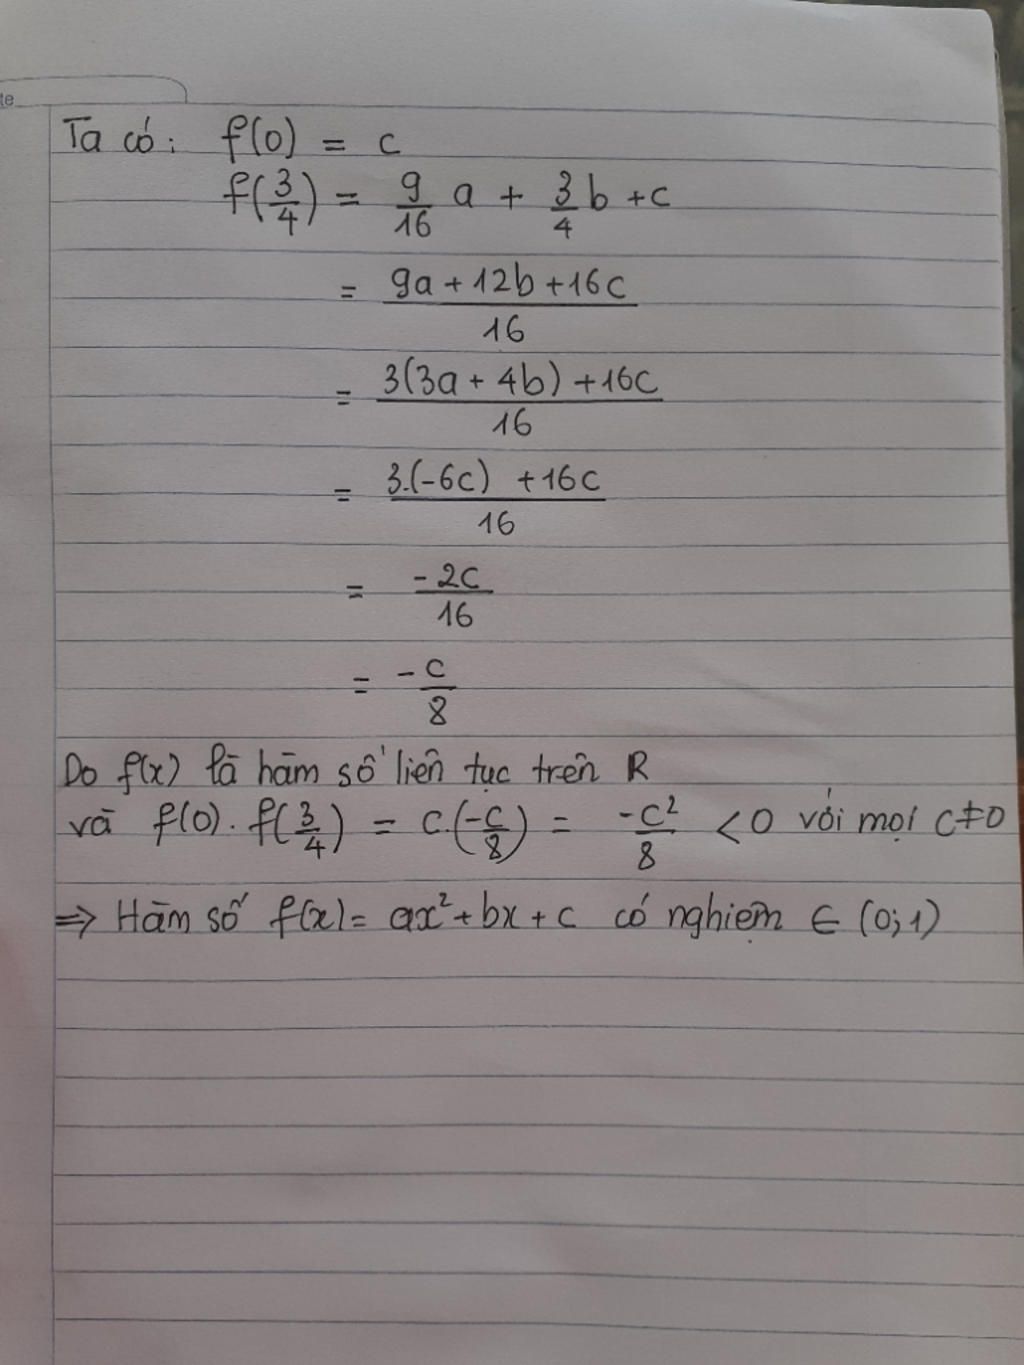 te
Ta có: f(0) = c
f(3/4) = 9/16 a + 3/4 b + c
= (9a + 12b + 16c)/16
= (3(3a + 4b) + 16c)/16
= (3.(-6c) + 16c)/16
= -2c/16
= -c/8
Do f(x) là hàm số liên tục trên R
và f(0). f(3/4) = c.(-c/8) = -c²/8 < 0 với mọi c≠0
=> Hàm số f(x) = ax² + bx + c có nghiệm ∈ (0;1)